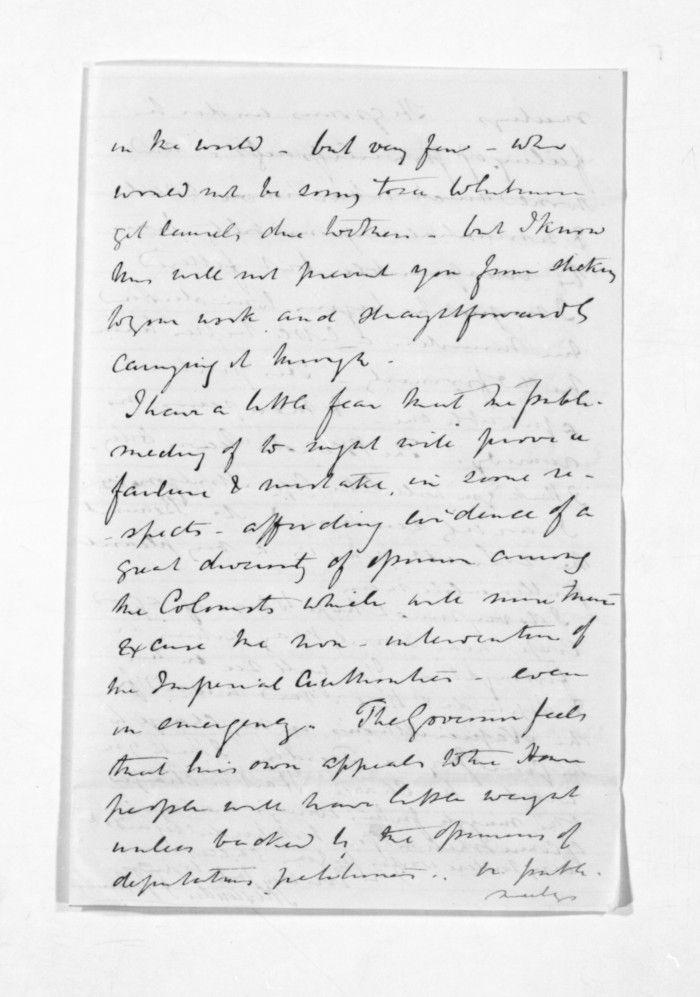 in the world - but very few - who
would not be sorry to see Whitmore
get laurels due to others - but I know
this will not prevent you from sticking
to your work and straightforwardly
carrying it through -
I have a little fear that the public
meeting of to-night will prove a
failure & mistake, in some re-
spects - affording evidence of a
great diversity of opinion among
the Colonists which will more than
excuse the non-intervention of
the Imperial Authorities - even
in emergency. The Governor feels
that his own appeals to the Home
people will have little weight
unless backed by the opinions of
deputations petitions .. or public
meetings